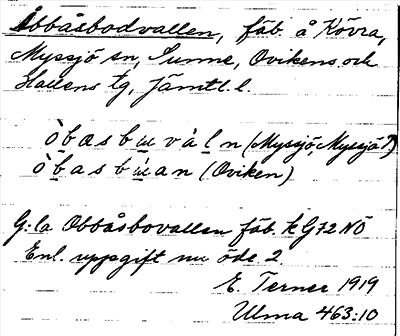 Åbbåsbodvallen, fäb. å Kövra,
Myssjö sn, Sunne, Ovikens och
Hallens tg, Jämtl. l.
òbasbu̲vàl̲n (Myssjö, Myssjö?)
òbasbu̲an (Oviken)
G:la Obbåsbovallen fäb. k G72 NÖ
Enl. uppgift nu öde. 2.
E. Terner 1919
Ulma 463:10